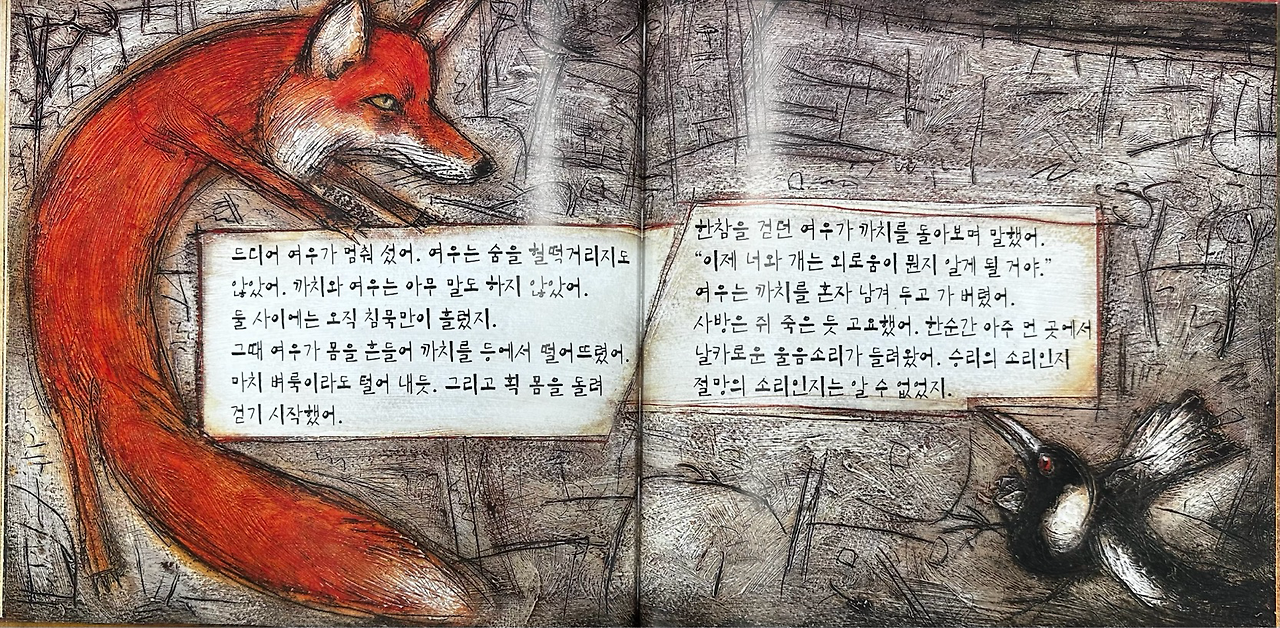 드디어 여우가 멈춰 섰어. 여우는 숨을 헐떡거리지도
않았어. 까치와 여우는 아무 말도 하지 않았어.
둘 사이에는 오직 침묵만이 흘렀지.
그때 여우가 몸을 흔들어 까치를 등에서 떨어뜨렸어.
마치 벼룩이라도 털어 내듯. 그리고 획 몸을 돌려
걷기 시작했어.
한참을 걷던 여우가 까치를 돌아보며 말했어.
“이제 너와 개는 외로움이 뭔지 알게 될 거야.”
여우는 까치를 혼자 남겨 두고 가 버렸어.
사방은 쥐 죽은 듯 고요했어. 한순간 아주 먼 곳에서
날카로운 울음소리가 들려왔어. 승리의 소리인지
절망의 소리인지는 알 수 없었지.